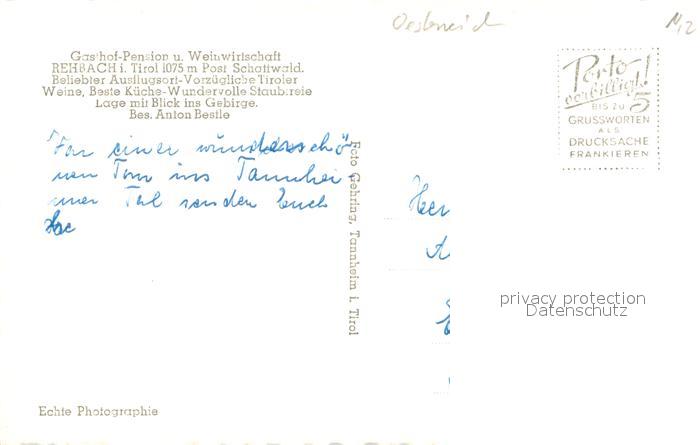 Oesterreich
Gasthof-Pension u. Weinwirtschaft
REHBACH i. Tirol 1075 m Post Schattwald.
Beliebter Ausflugsort-Vorzügliche Tiroler
Weine, Beste Küche-Wundervolle Staubfreie
Lage mit Blick ins Gebirge.
Bes. Anton Bestle
Porto
verbilligt!
BIS ZU 5
GRUSSWORTEN
ALS
DRUCKSACHE
FRANKIEREN
einer wunderschö-
nen Tour ins Tannhei-
mer Tal senden Euch
Foto Gehring, Tannheim i. Tirol
Her
privacy protection
Datenschutz
Echte Photographie